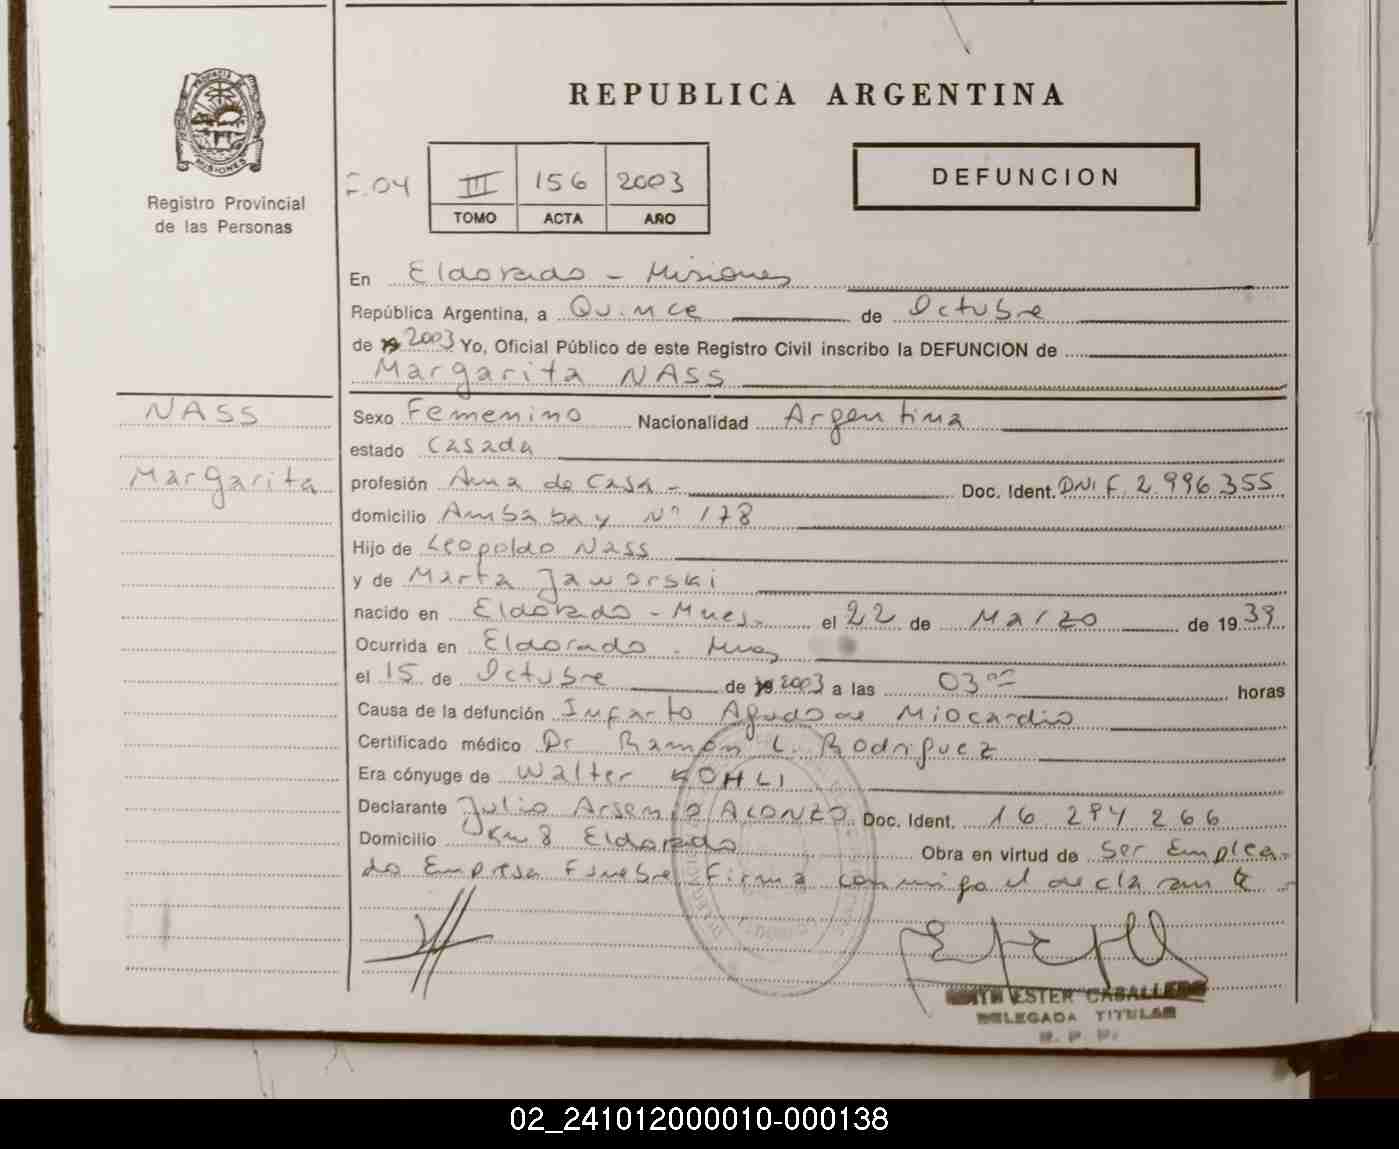 REPUBLICA ARGENTINA
PROVINCIA DE
MISIONES
Registro Provincial
de las Personas
F.04
III 156 2003
TOMO ACTA AÑO
DEFUNCION
En Eldorado - Misiones
República Argentina, a Quince de Octubre
de 2003 Yo, Oficial Público de este Registro Civil inscribo la DEFUNCION de
Margarita NASS
NASS
Margarita
Sexo Femenino Nacionalidad Argentina
estado Casada
profesión Ama de Casa - Doc. Ident. DNI F. 2.996.355
domicilio Ambabay Nº 178
Hijo de Leopoldo Nass
y de Marta Jaworski
nacido en Eldorado - Mnes. el 22 de Marzo de 1939
Ocurrida en Eldorado - Mnes
el 15 de Octubre de 2003 a las 03 00 horas
Causa de la defunción Infarto Agudo de Miocardio
Certificado médico Dr Ramón L. Rodriguez
Era cónyuge de Walter KOHLI
Declarante Julio Arsenio ALONZO Doc. Ident. 16 294 266
Domicilio Km 8 Eldorado Obra en virtud de Ser Emplea-
do Empresa Funebre Firma conmigo el declarante -
ESTER CABALLERO
DELEGADA TITULAR
R. P. P.
02_241012000010-000138